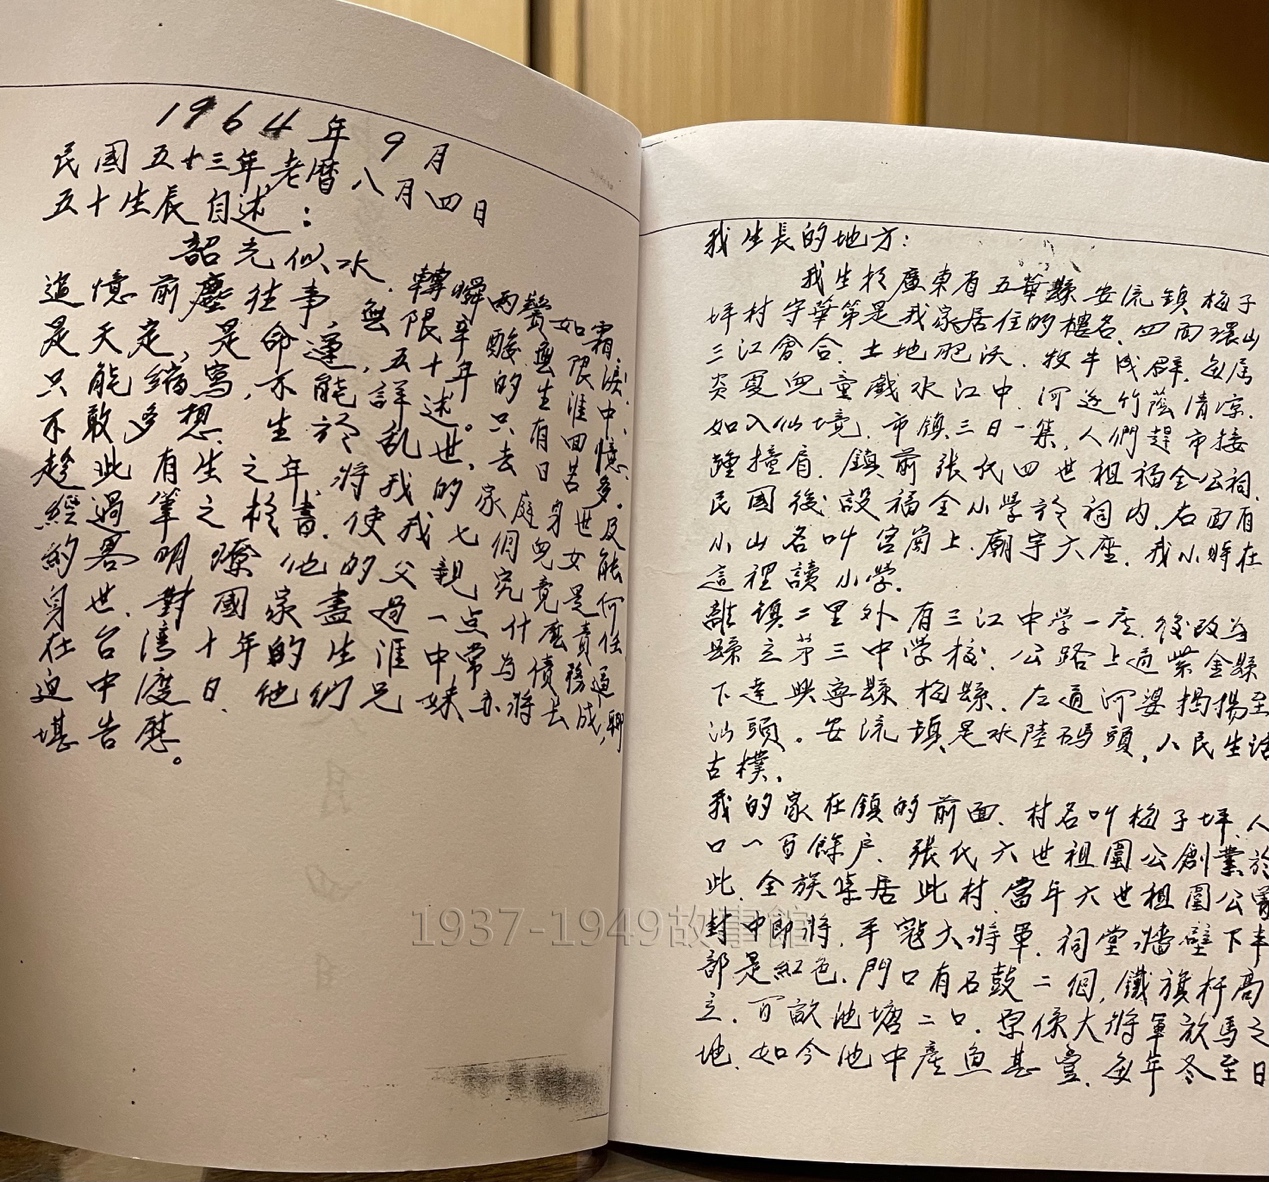 1964年9月
民國五十三年,老曆八月四日
五十生辰自述:
韶光似水.轉瞬兩鬢如霜,
追憶前塵往事無限辛酸無限淚.
是天定,是命運,五十年的生涯中.
只能縮寫,不能詳述。只有回憶.
不敢多想.生於亂世,去日苦多。
趁此有生之年.將我的家庭身世及
經過筆之於書.使我七個兒女能
約畧明瞭他的父親究竟是何
身世.對國家盡過一点什麼責任
在台灣十年的生涯中常為債務逼
迫中渡日.他們兄妹亦將長成,聊
堪告慰。
我生長的地方:
我生於廣東省五華縣安流鎮梅子
坪村守華第是我家居住的樓名.四面環山
三江會合.土地肥沃.牧牛成群.每屆
炎夏兒童戲水江中.河邊竹蔭清涼.
如入仙境.市鎮三日一集,人們趕市接
踵撞肩.鎮前張氏四世祖福全公祠.
民國後設福全小学於祠內.右面有
小山名叫宮崗上.廟宇六座.我小時在
這裡讀小学.
離鎮二里外有三江中学一座.後改為
縣立第三中学校.公路上通紫金縣
下達興寧縣梅縣.左通河婆揭揚至
汕頭。安流鎮是水陸碼頭,人民生活
古樸.
我的家在鎮的前面.村名叫梅子坪.人
口一百餘户.張氏六世祖圍公創業於
此.全族集居此村.當年六世祖圍公
封中郎將.平寇大將軍.祠堂墻壁下半
部是紅色.門口有石鼓二個,鐵旗杆高
立.百畝池塘二口.原係大將軍放馬之
地.如今池中產魚甚豐.每年冬至日
1937-1949故事館